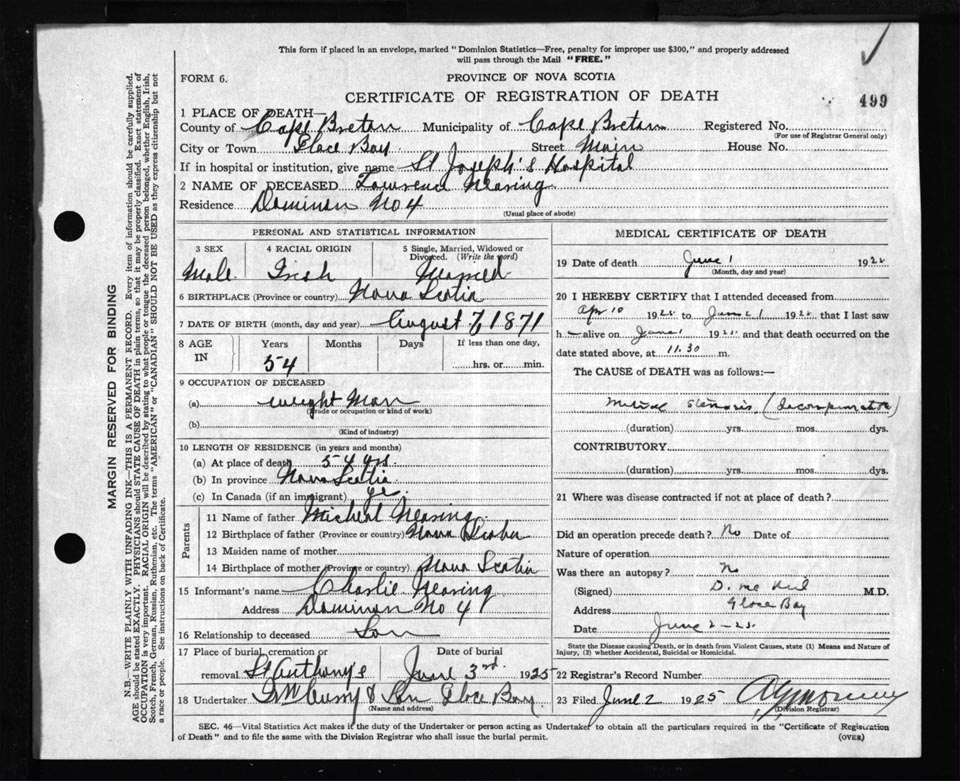 This form if placed in an envelope, marked "Dominion Statistics—Free, penalty for improper use $300," and properly addressed
will pass through the Mail "FREE."
FORM 6.
PROVINCE OF NOVA SCOTIA
CERTIFICATE OF REGISTRATION OF DEATH
499
1 PLACE OF DEATH—
County of Cape Breton Municipality of Cape Breton Registered No.
(For use of Registrar General only)
City or Town Glace Bay Street Main House No.
If in hospital or institution, give name St Joseph's Hospital
2 NAME OF DECEASED Lawrence Nearing
Residence Dominion No 4
(Usual place of abode)
PERSONAL AND STATISTICAL INFORMATION
3 SEX 4 RACIAL ORIGIN 5 Single, Married, Widowed or Divorced. (Write the word)
Male Irish Married
6 BIRTHPLACE (Province or country) Nova Scotia
7 DATE OF BIRTH (month, day and year) August 7, 1871
8 AGE IN Years Months Days If less than one day,
54 hrs. or min.
9 OCCUPATION OF DECEASED
(a) weight Man
(Trade or occupation or kind of work)
(b)
(Kind of industry)
10 LENGTH OF RESIDENCE (in years and months)
(a) At place of death 54 yrs.
(b) In province Nova Scotia
(c) In Canada (if an immigrant)
Parents
11 Name of father Micheal Nearing
12 Birthplace of father (Province or country) Nova Scotia
13 Maiden name of mother
14 Birthplace of mother (Province or country) Nova Scotia
15 Informant's name Charlie Nearing
Address Dominion No 4
16 Relationship to deceased Son
17 Place of burial, cremation or Date of burial
removal St Anthony's June 3rd. 1925
18 Undertaker & Son Glace Bay
(Name and address)
MEDICAL CERTIFICATE OF DEATH
19 Date of death June 1 192
(Month, day and year)
20 I HEREBY CERTIFY that I attended deceased from
Apr 10 192 to June 1 192 that I last saw
h alive on June 1 192 and that death occurred on the
date stated above, at 11.30 m.
The CAUSE of DEATH was as follows:—
Mitral Stenosis (decompensation)
(duration) yrs. mos. dys.
CONTRIBUTORY
(duration) yrs. mos. dys.
21 Where was disease contracted if not at place of death?
Did an operation precede death? No Date of
Nature of operation
Was there an autopsy? No
(Signed) D. Mc Neil M.D.
Address Glace Bay
Date June 2-25.
State the Disease causing Death, or in death from Violent Causes, state (1) Means and Nature of
Injury, (2) whether Accidental, Suicidal or Homicidal.
22 Registrar's Record Number
23 Filed June 2 1925
(Division Registrar)
SEC. 46—Vital Statistics Act makes it the duty of the Undertaker or person acting as Undertaker to obtain all the particulars required in the "Certificate of Registration
of Death" and to file the same with the Division Registrar who shall issue the burial permit. (OVER)
MARGIN RESERVED FOR BINDING
N.B.—WRITE PLAINLY WITH UNFADING INK—THIS IS A PERMANENT RECORD. Every item of information should be carefully supplied.
AGE should be stated EXACTLY. PHYSICIANS should STATE CAUSE OF DEATH in plain terms, so that it may be properly classified. Exact statement of
OCCUPATION is very important. RACIAL ORIGIN will be described by stating to what people or tongue the deceased person belonged, whether English, Irish,
Scotch, French, German, Russian, Ruthenian, etc. The terms "AMERICAN" or "CANADIAN" SHOULD NOT BE USED as they express citizenship but not
a race or people. See instructions on back of Certificate.